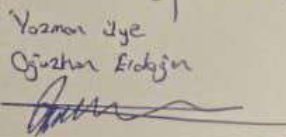 Yazman üye
Oğuzhan Erdoğan